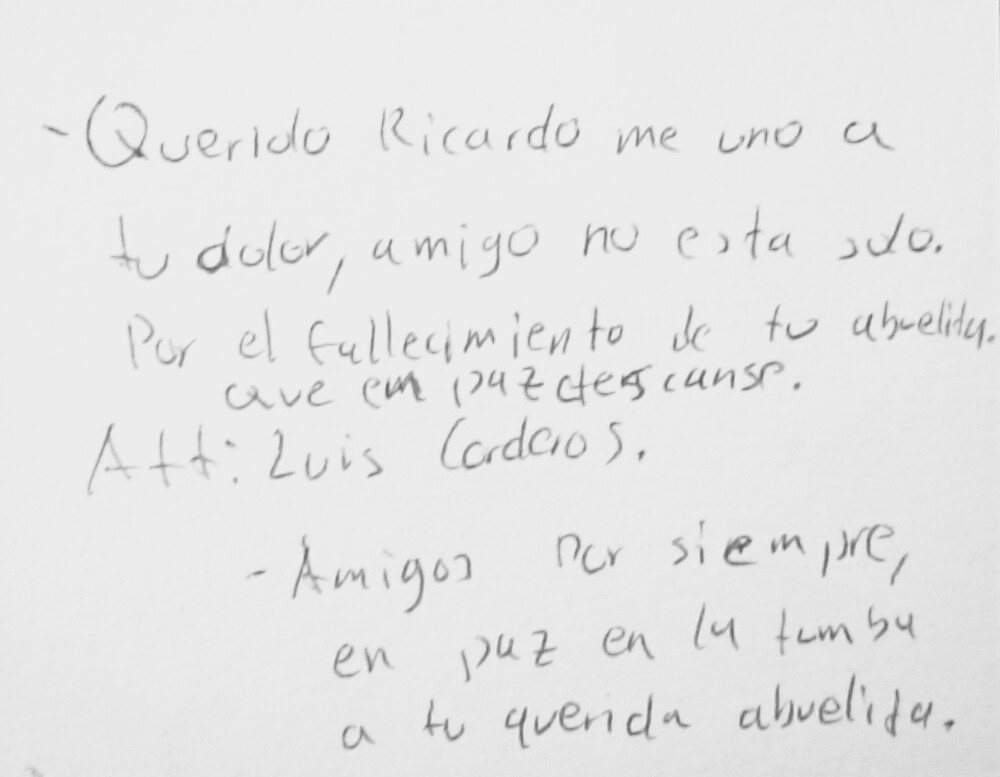 - Querido Ricardo me uno a
tu dolor, amigo no esta solo.
Por el fallecimiento de tu abuelita.
que en paz descanse.
Att: Luis Corderos.
- Amigos por siempre,
en paz en la tumba
a tu querida abuelita.